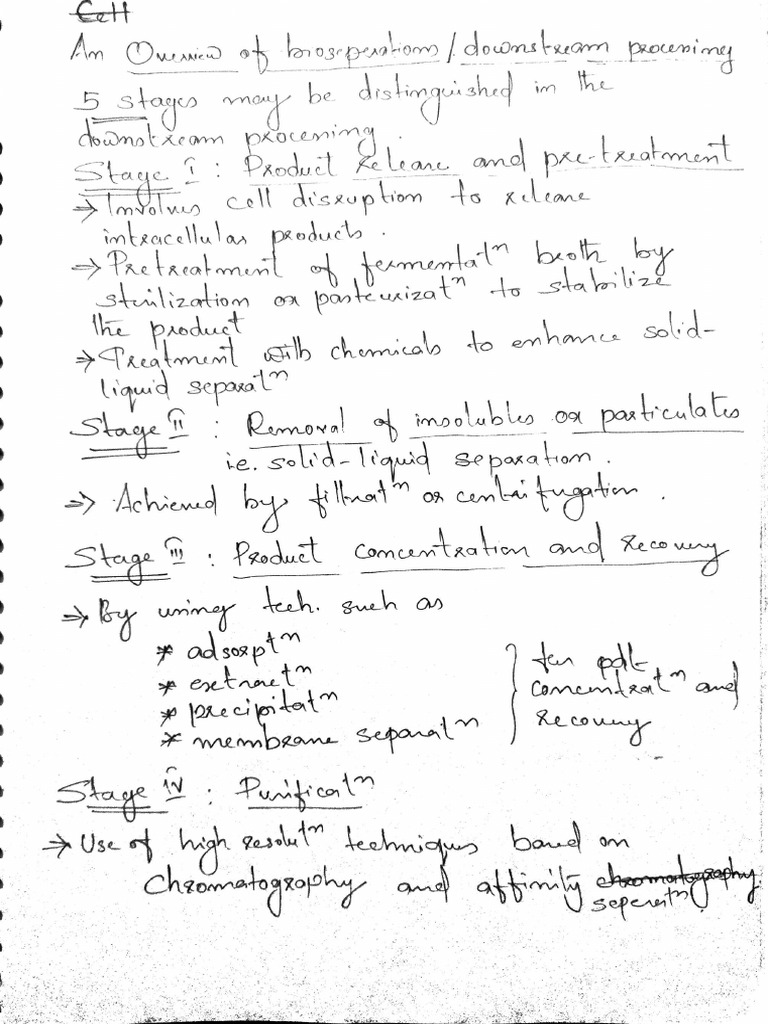 Cell
An Overview of bioseperations/downstream processing
5 stages may be distinguished in the
downstream processing.
Stage I : Product release and pre-treatment
⇒ Involves cell disruption to release
intracellular products.
⇒ Pretreatment of fermentatⁿ broth by
sterilization or pasteurizatⁿ to stabilize
the product
⇒ Treatment with chemicals to enhance solid-
liquid separatⁿ
Stage II : Removal of insolubles or particulates
i.e. solid-liquid separation.
⇒ Achieved by filtratⁿ or centrifugation.
Stage III : Product concentration and recovery
⇒ By using tech. such as
* adsorptⁿ
* extractⁿ
* precipitatⁿ
* membrane separatⁿ
for pdt
concentratⁿ and
recovery
Stage IV : Purificatⁿ
⇒ Use of high resolutⁿ techniques based on
Chromatography and affinity chromatography
seperatⁿ.